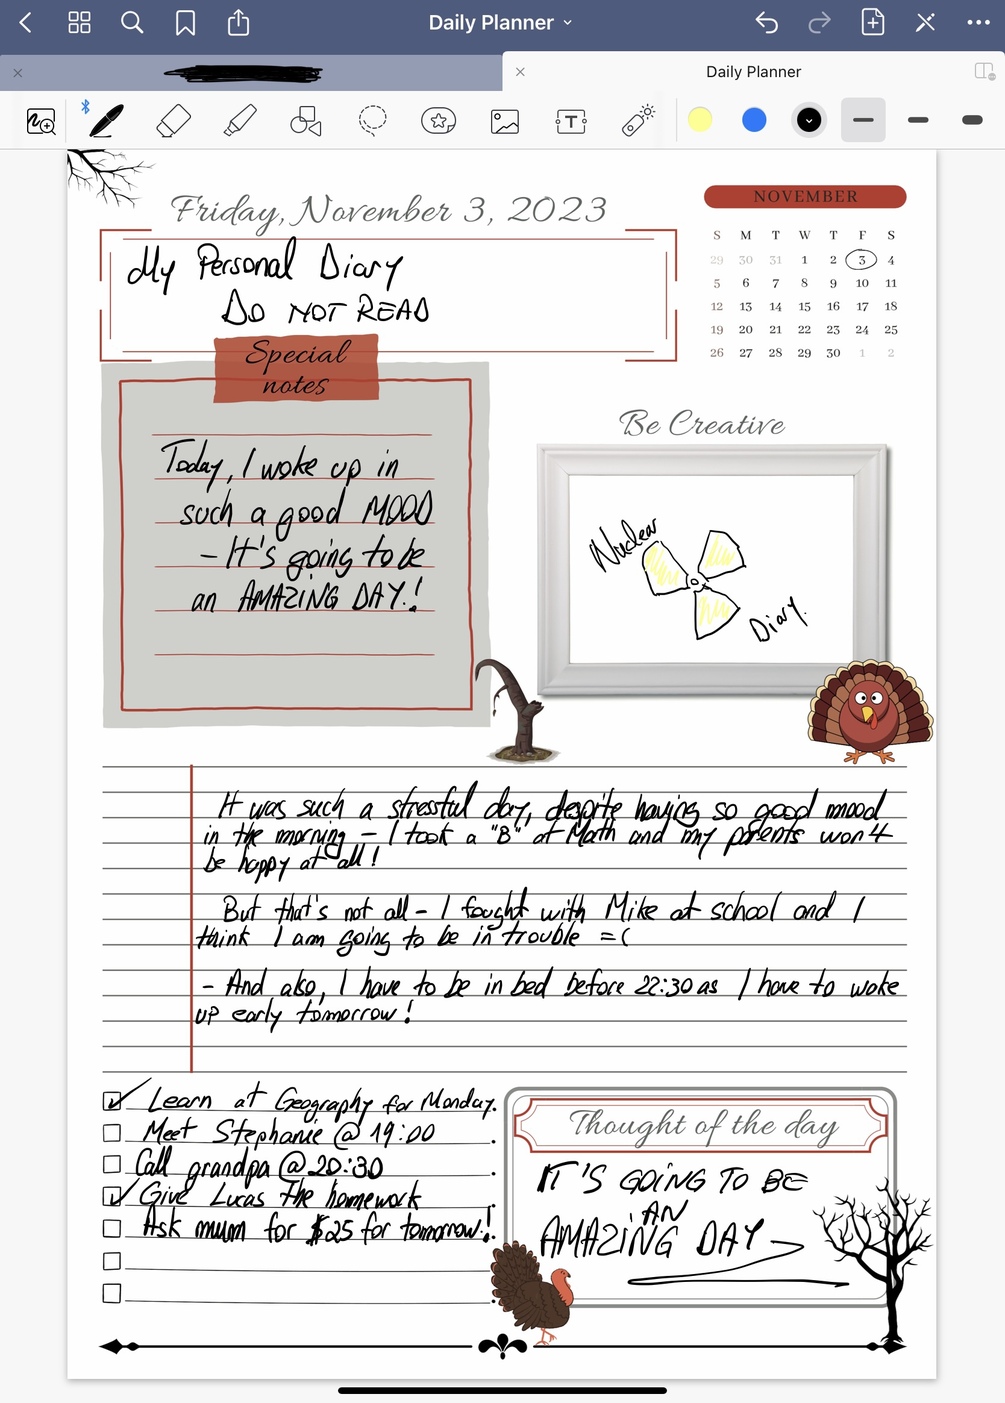 Daily Planner
Daily Planner
T
Friday, November 3, 2023
NOVEMBER
S M T W T F S
29 30 31 1 2 3 4
5 6 7 8 9 10 11
12 13 14 15 16 17 18
19 20 21 22 23 24 25
26 27 28 29 30 1 2
My Personal Diary
DO NOT READ
Special
notes
Today, I woke up in
such a good MOOD
- It's going to be
an AMAZING DAY!
Be Creative
Nuclear
Diary.
It was such a stressful day, despite having so good mood
in the morning - I took a "B" at Math and my parents won't
be happy at all!
But that's not all - I fought with Mike at school and I
think I am going to be in trouble =(
- And also, I have to be in bed before 22:30 as I have to wake
up early tomorrow!
Learn at Geography for Monday.
Meet Stephanie @ 19:00
Call grandpa @ 20:30
Give Lucas the homework
Ask mum for $25 for tomorrow!
Thought of the day
IT'S GOING TO BE
AN
AMAZING DAY